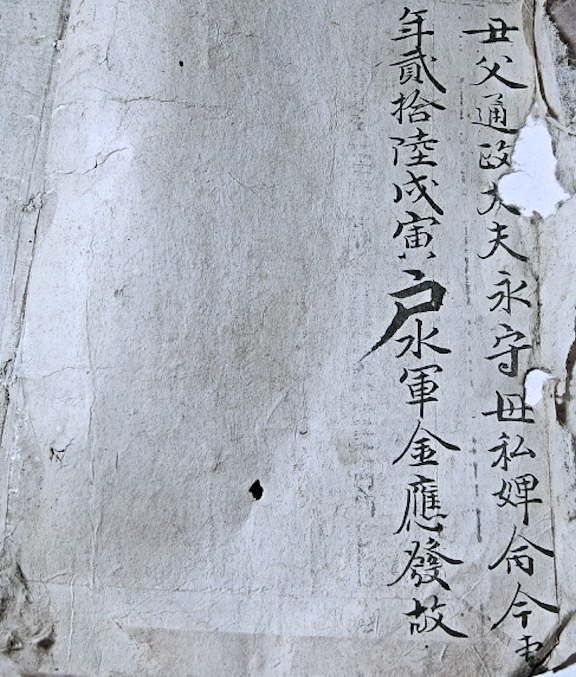 丑父通政大夫永守母私婢侖今
年貳拾陸戊寅戶水軍金應發故